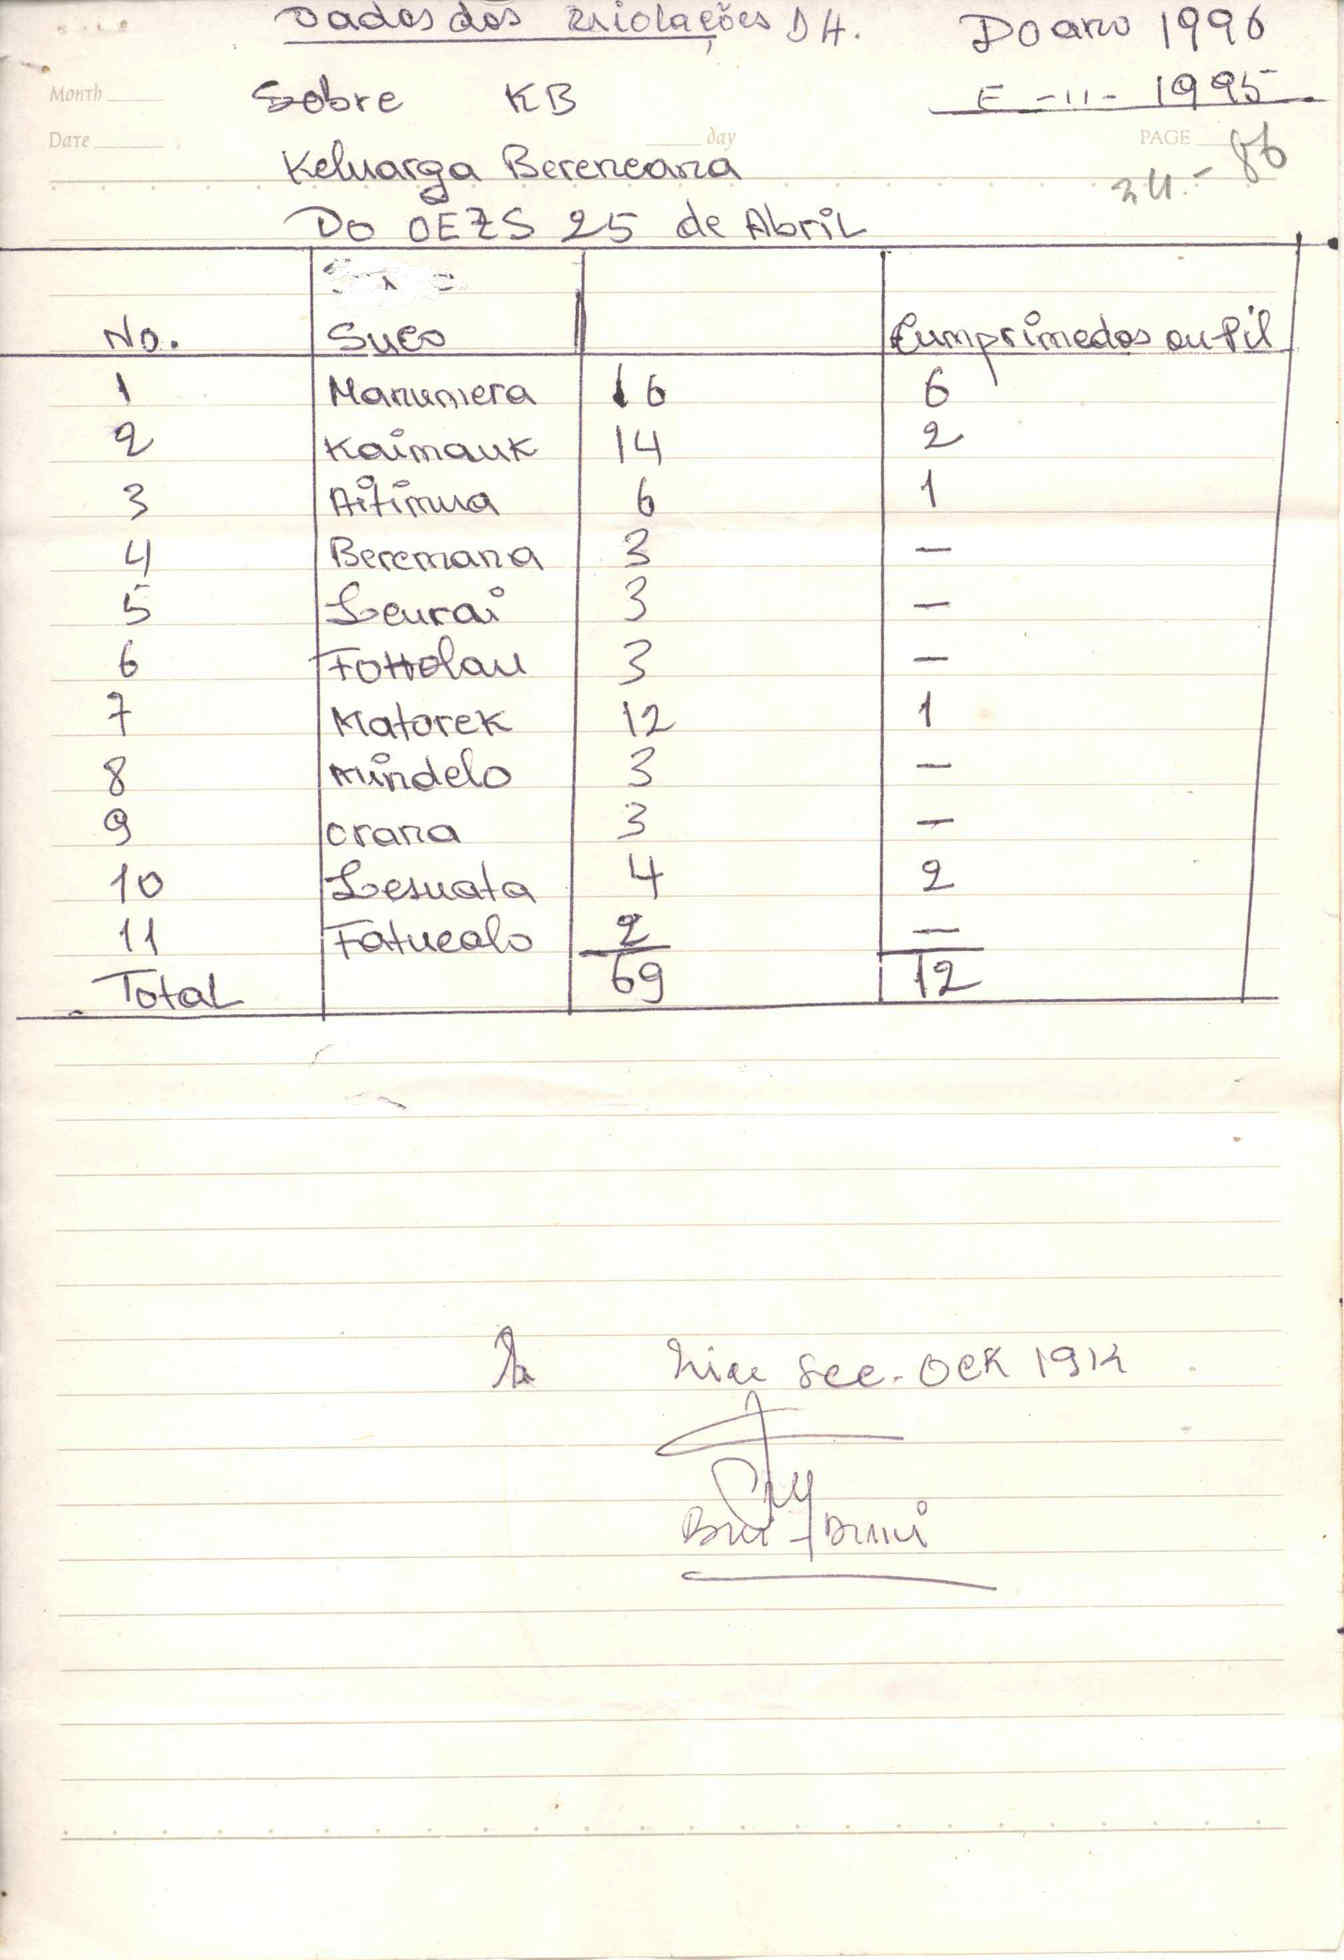 Dados dos Violações DH. Do ano 1996
Month
Sobre KB
E -11- 1995
Date
day
PAGE
Keluarga Bereneana
34.- 86
Do OEZS 25 de Abril
No. Suco Cumprimedos ou Pil
1 Manumera 16 6
2 Kaimauk 14 2
3 Aitimua 6 1
4 Beremana 3 —
5 Leurai 3 —
6 Fottolau 3 —
7 Matorek 12 1
8 Mindelo 3 —
9 Orana 3 —
10 Lesuata 4 2
11 Fatucalo 2 —
Total 69 12
Sec.